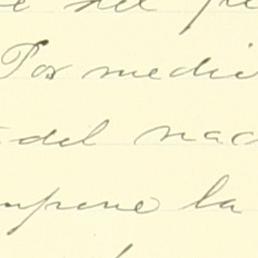 del
Por medi
del nac
mpone la